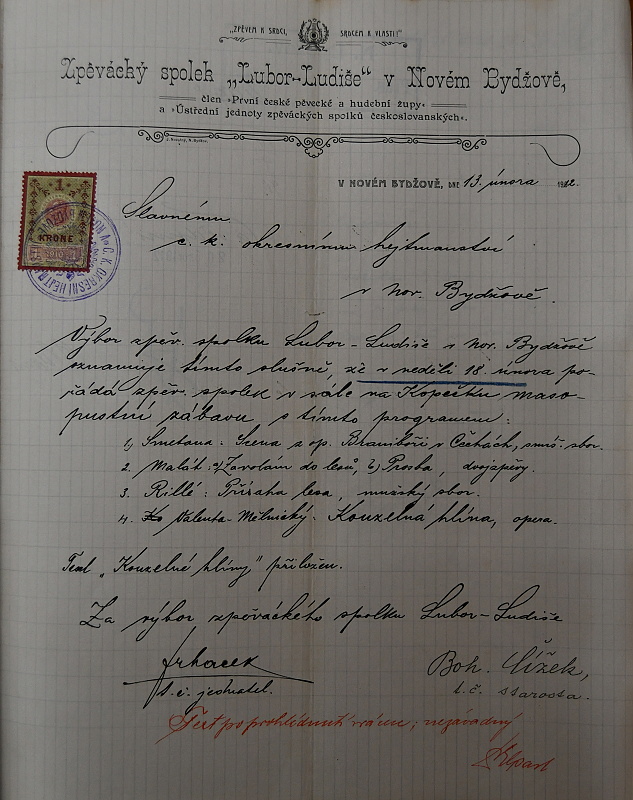 „ZPĚVEM K SRDCI, SRDCEM K VLASTI!"
Zpěvácký spolek „Lubor-Ludiše" v Novém Bydžově,
člen »První české pěvecké a hudební župy«
a »Ústřední jednoty zpěváckých spolků českoslovanských«.
V NOVÉM BYDŽOVĚ, DNE 13. února 1912.
1
KRONE
1910
C. K. OKRESNÍ HEJT
Slavnému
c. k. okresnímu hejtmanství
v Nov. Bydžově.
Výbor zpěv. spolku Lubor-Ludiše v Nov. Bydžově
oznamuje tímto slušně, že v neděli 18. února po-
řádá zpěv. spolek v sále na Kopečku maso-
pustní zábavu s tímto programem:
1, Smetana: Scena z op. Braniboři v Čechách, smíš. sbor.
2. Malát: a) Zavolám do lesů, b) Prosba, dvojzpěvy.
3. Rillé: Přísaha lesa, mužský sbor.
4. Valenta-Mělnický: Kouzelná hlína, opera.
Text „Kouzelné hlíny" přiložen.
Za výbor zpěváckého spolku Lubor-Ludiše
jednatel.
Boh. Čížek,
t. č. starosta.
Text po prohlédnutí vrácen; nezávadný